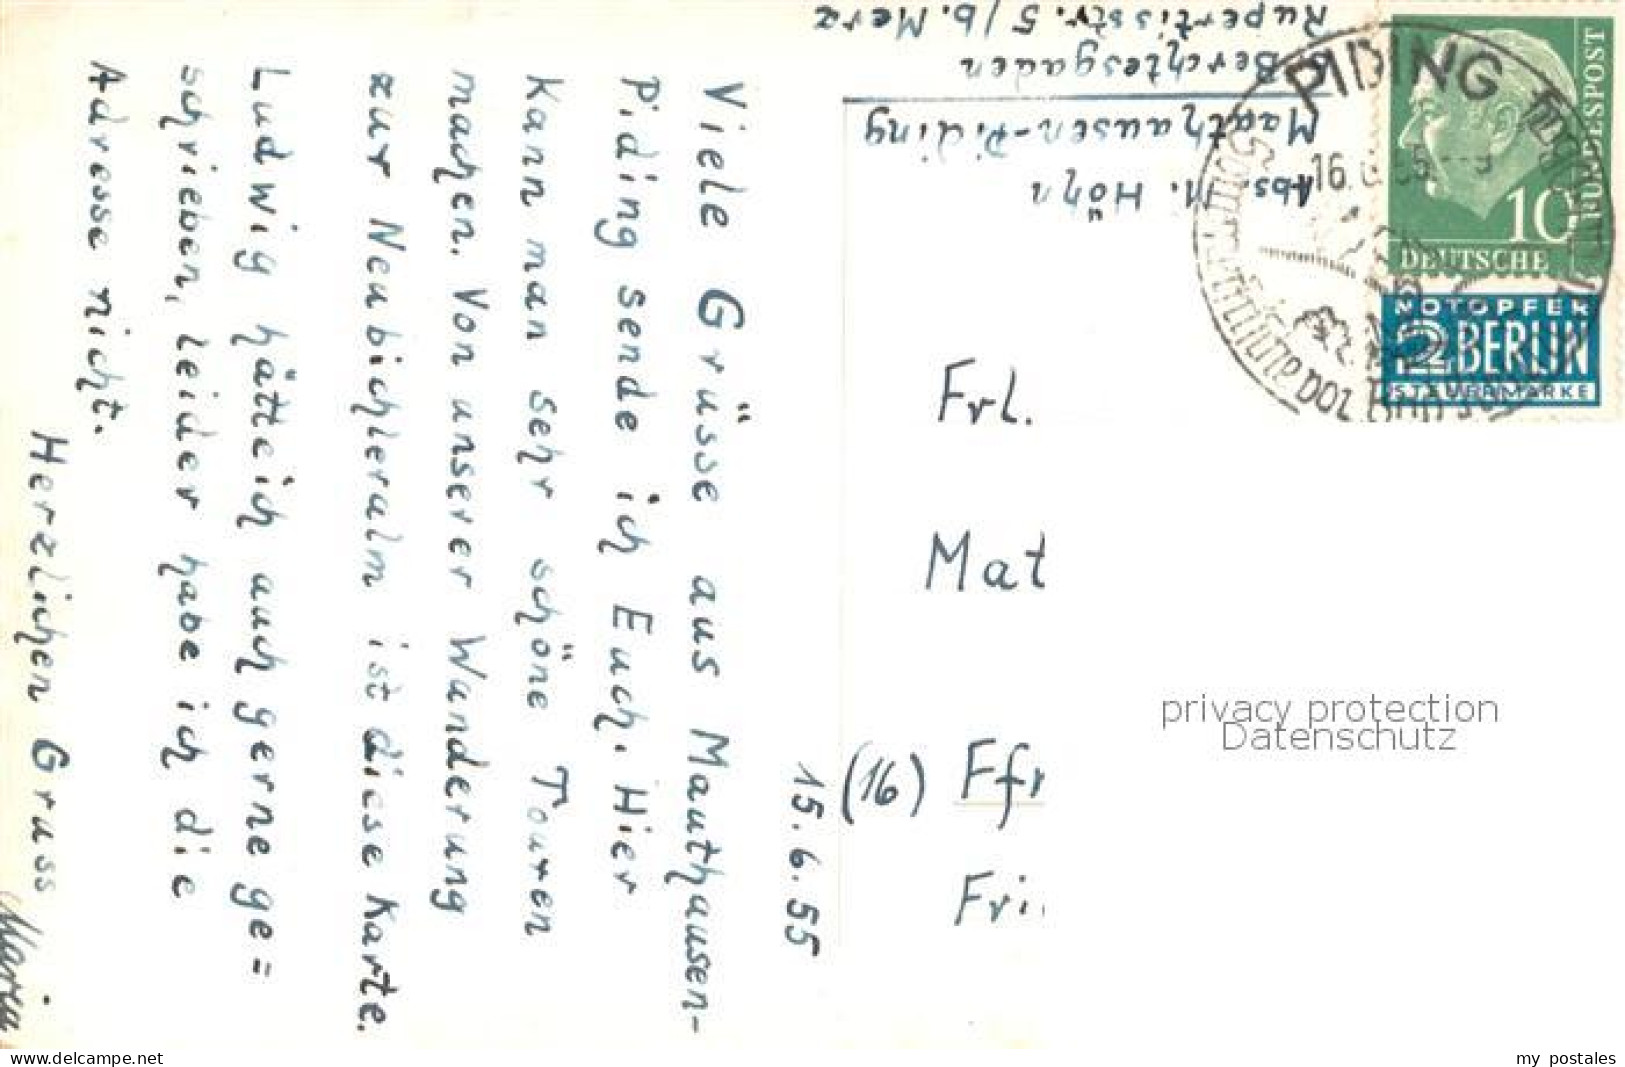 15.6.55
Viele Grüsse aus Mauthausen-
Piding sende ich Euch. Hier
Kann man sehr schöne Touren
machen. Von unserer Wanderung
zur Neubichleralm ist diese Karte.
Ludwig hätte ich auch gerne ge=
schrieben, leider habe ich die
Adresse nicht.
Herzlichen Gruss
Maria
Abs. M. Höhn
Mauthausen-Piding
Berchtesgaden
Rupertisstr. 5 / b. Merz
PIDING
16.
DEUTSCHE
BUNDESPOST
10
NOTOPFER
2 BERLIN
STEUERMARKE
Frl.
Mat
(16) Ffm
Fri
privacy protection
Datenschutz
www.delcampe.net
my postales